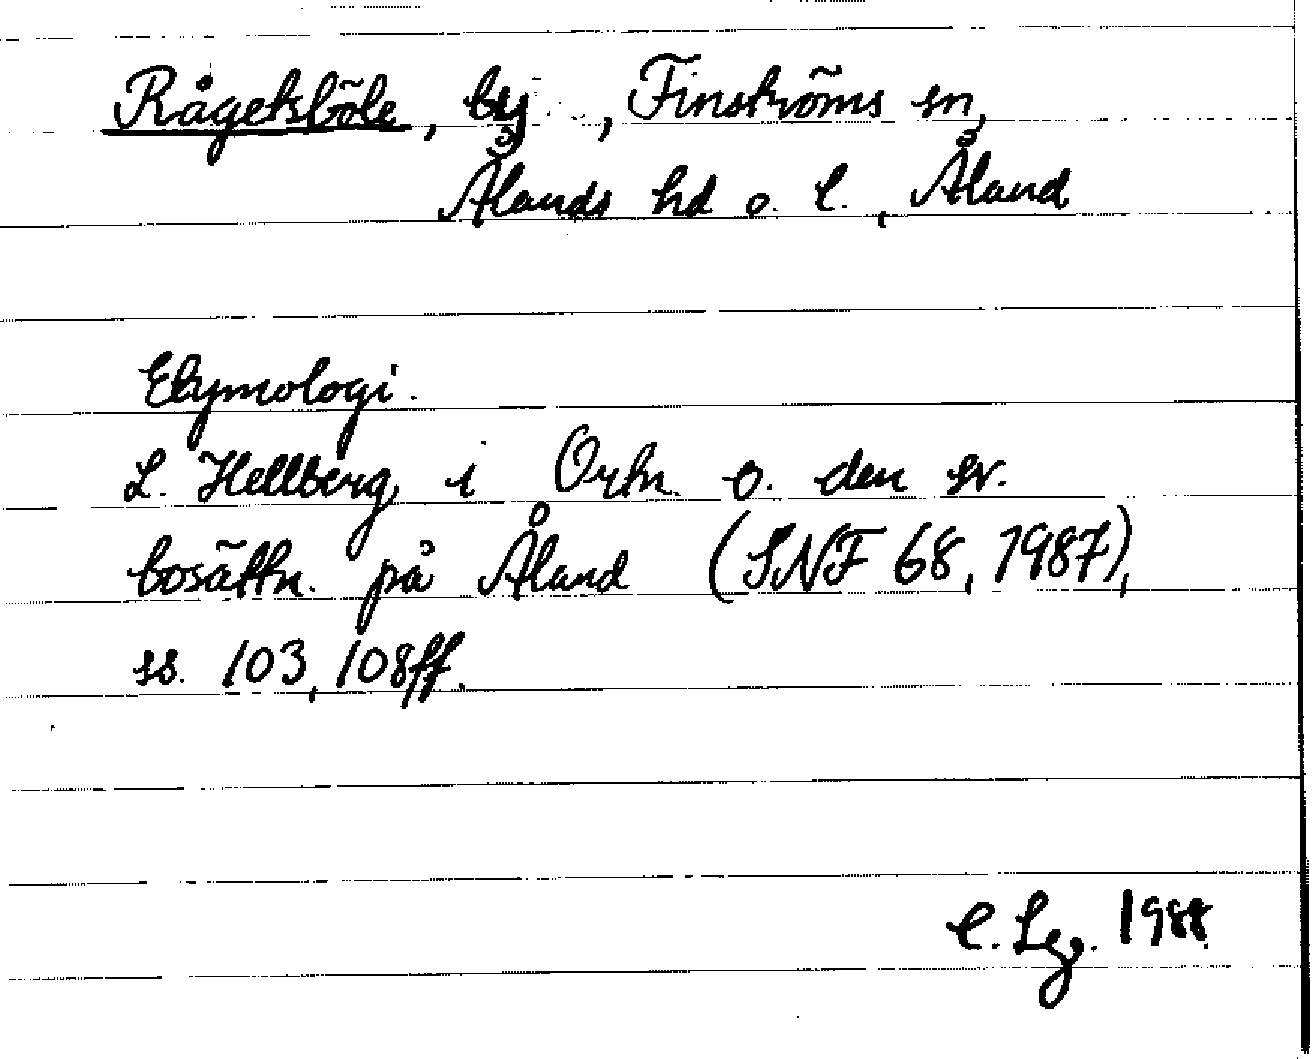 Rågetsböle, by , Finströms sn,
Ålands hd o. l., Åland
Etymologi.
L. Hellberg i Ortn. o. den sv.
bosättn. på Åland (SNF 68, 1987),
ss. 103, 108ff.
1988